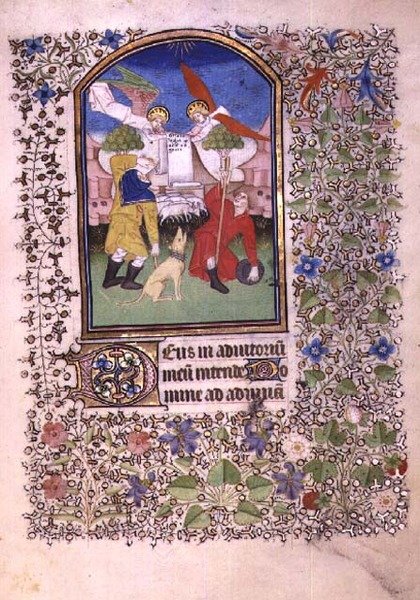 Eus in adiutoriū
meū intende Do
mine ad adiuuā